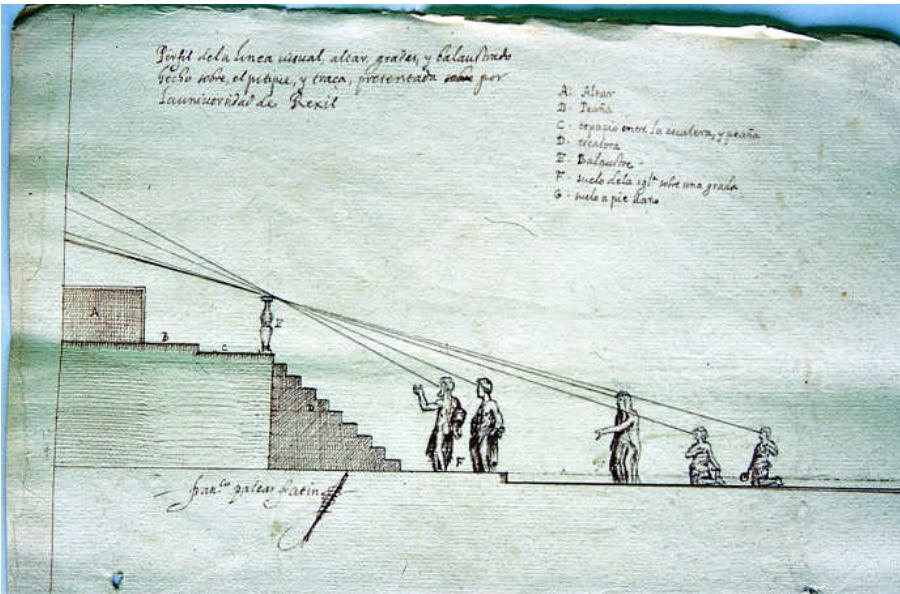 Perfil dela linea visual, altar, gradas, y balaustrado
hecho sobre, el pitipie, y traça, presentada sobre por
launiversidad de Rexil
A. Altar
B. Peaña
C. espacio entre la escalera, y peaña
D. escalera
E. Balaustre
F. suelo dela iglª sobre una grada
G. suelo a pie llano
A
B
C
E
D
F
franco palear fratin